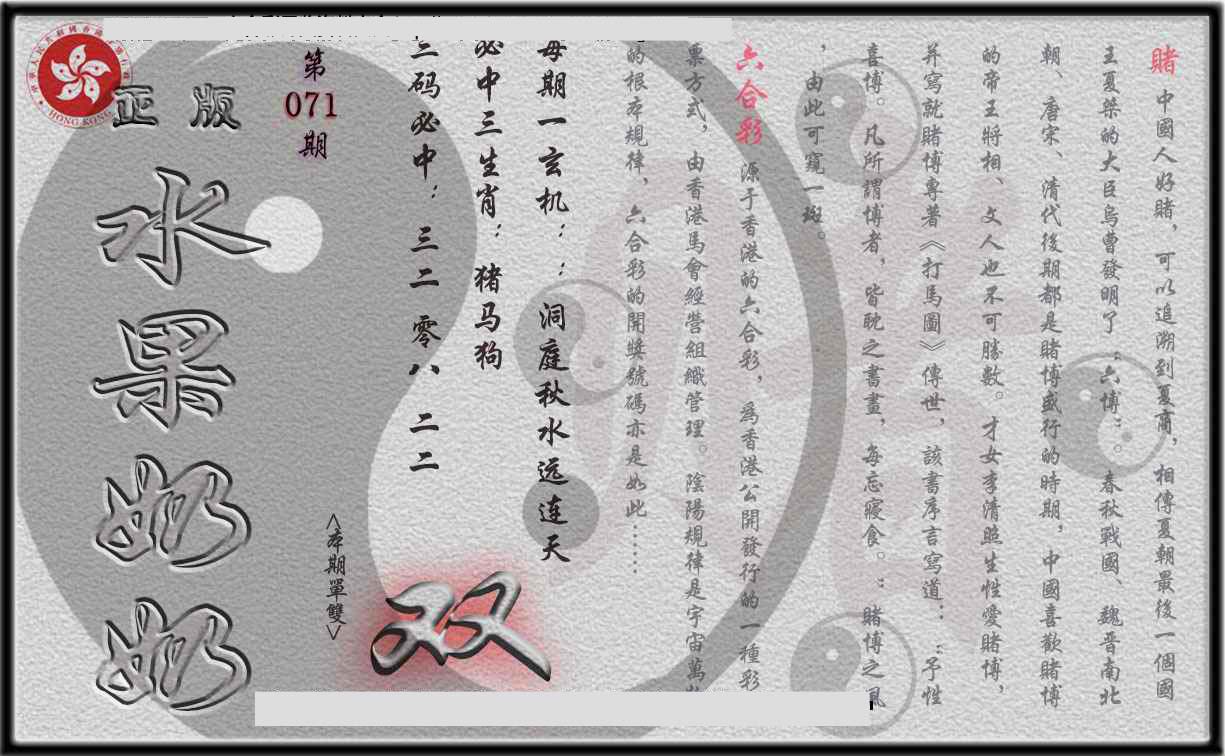 賭 中國人好賭，可以追溯到夏商，相傳夏朝最後一個國
王夏桀的大臣烏曹發明了“六博”。春秋戰國、魏晉南北
朝、唐宋、清代後期都是賭博盛行的時期，中國喜歡賭博
的帝王將相、文人也不可勝數。才女李清照生性愛賭博，
并寫就賭博專著《打馬圖》傳世，該書序言寫道：“予性
喜博。凡所謂博者，皆耽之書畫，每忘寢食。”賭博之風
，由此可窺一斑。
六合彩 源于香港的六合彩，為香港公開發行的一種彩
票方式，由香港馬會經營組織管理。陰陽規律是宇宙萬
的根本規律、六合彩的開獎號碼亦是如此……
每期一玄机：：洞庭秋水远连天
必中三生肖：猪马狗
三码必中：三二 零八 二二
第071期
正版
水果奶奶
<本期單雙>
双
HONG KONG